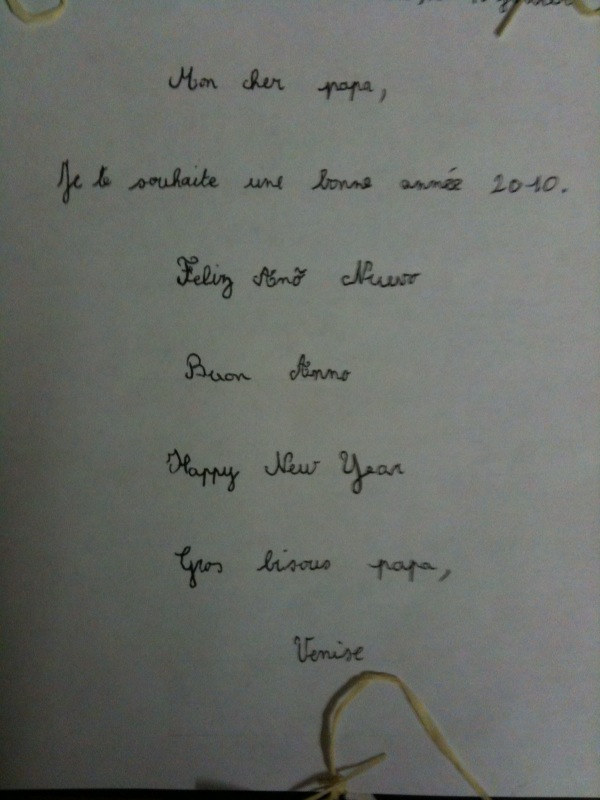 Mon cher papa,
Je te souhaite une bonne année 2010.
Feliz Anõ Nuevo
Buon Anno
Happy New Year
Gros bisous papa,
Venise